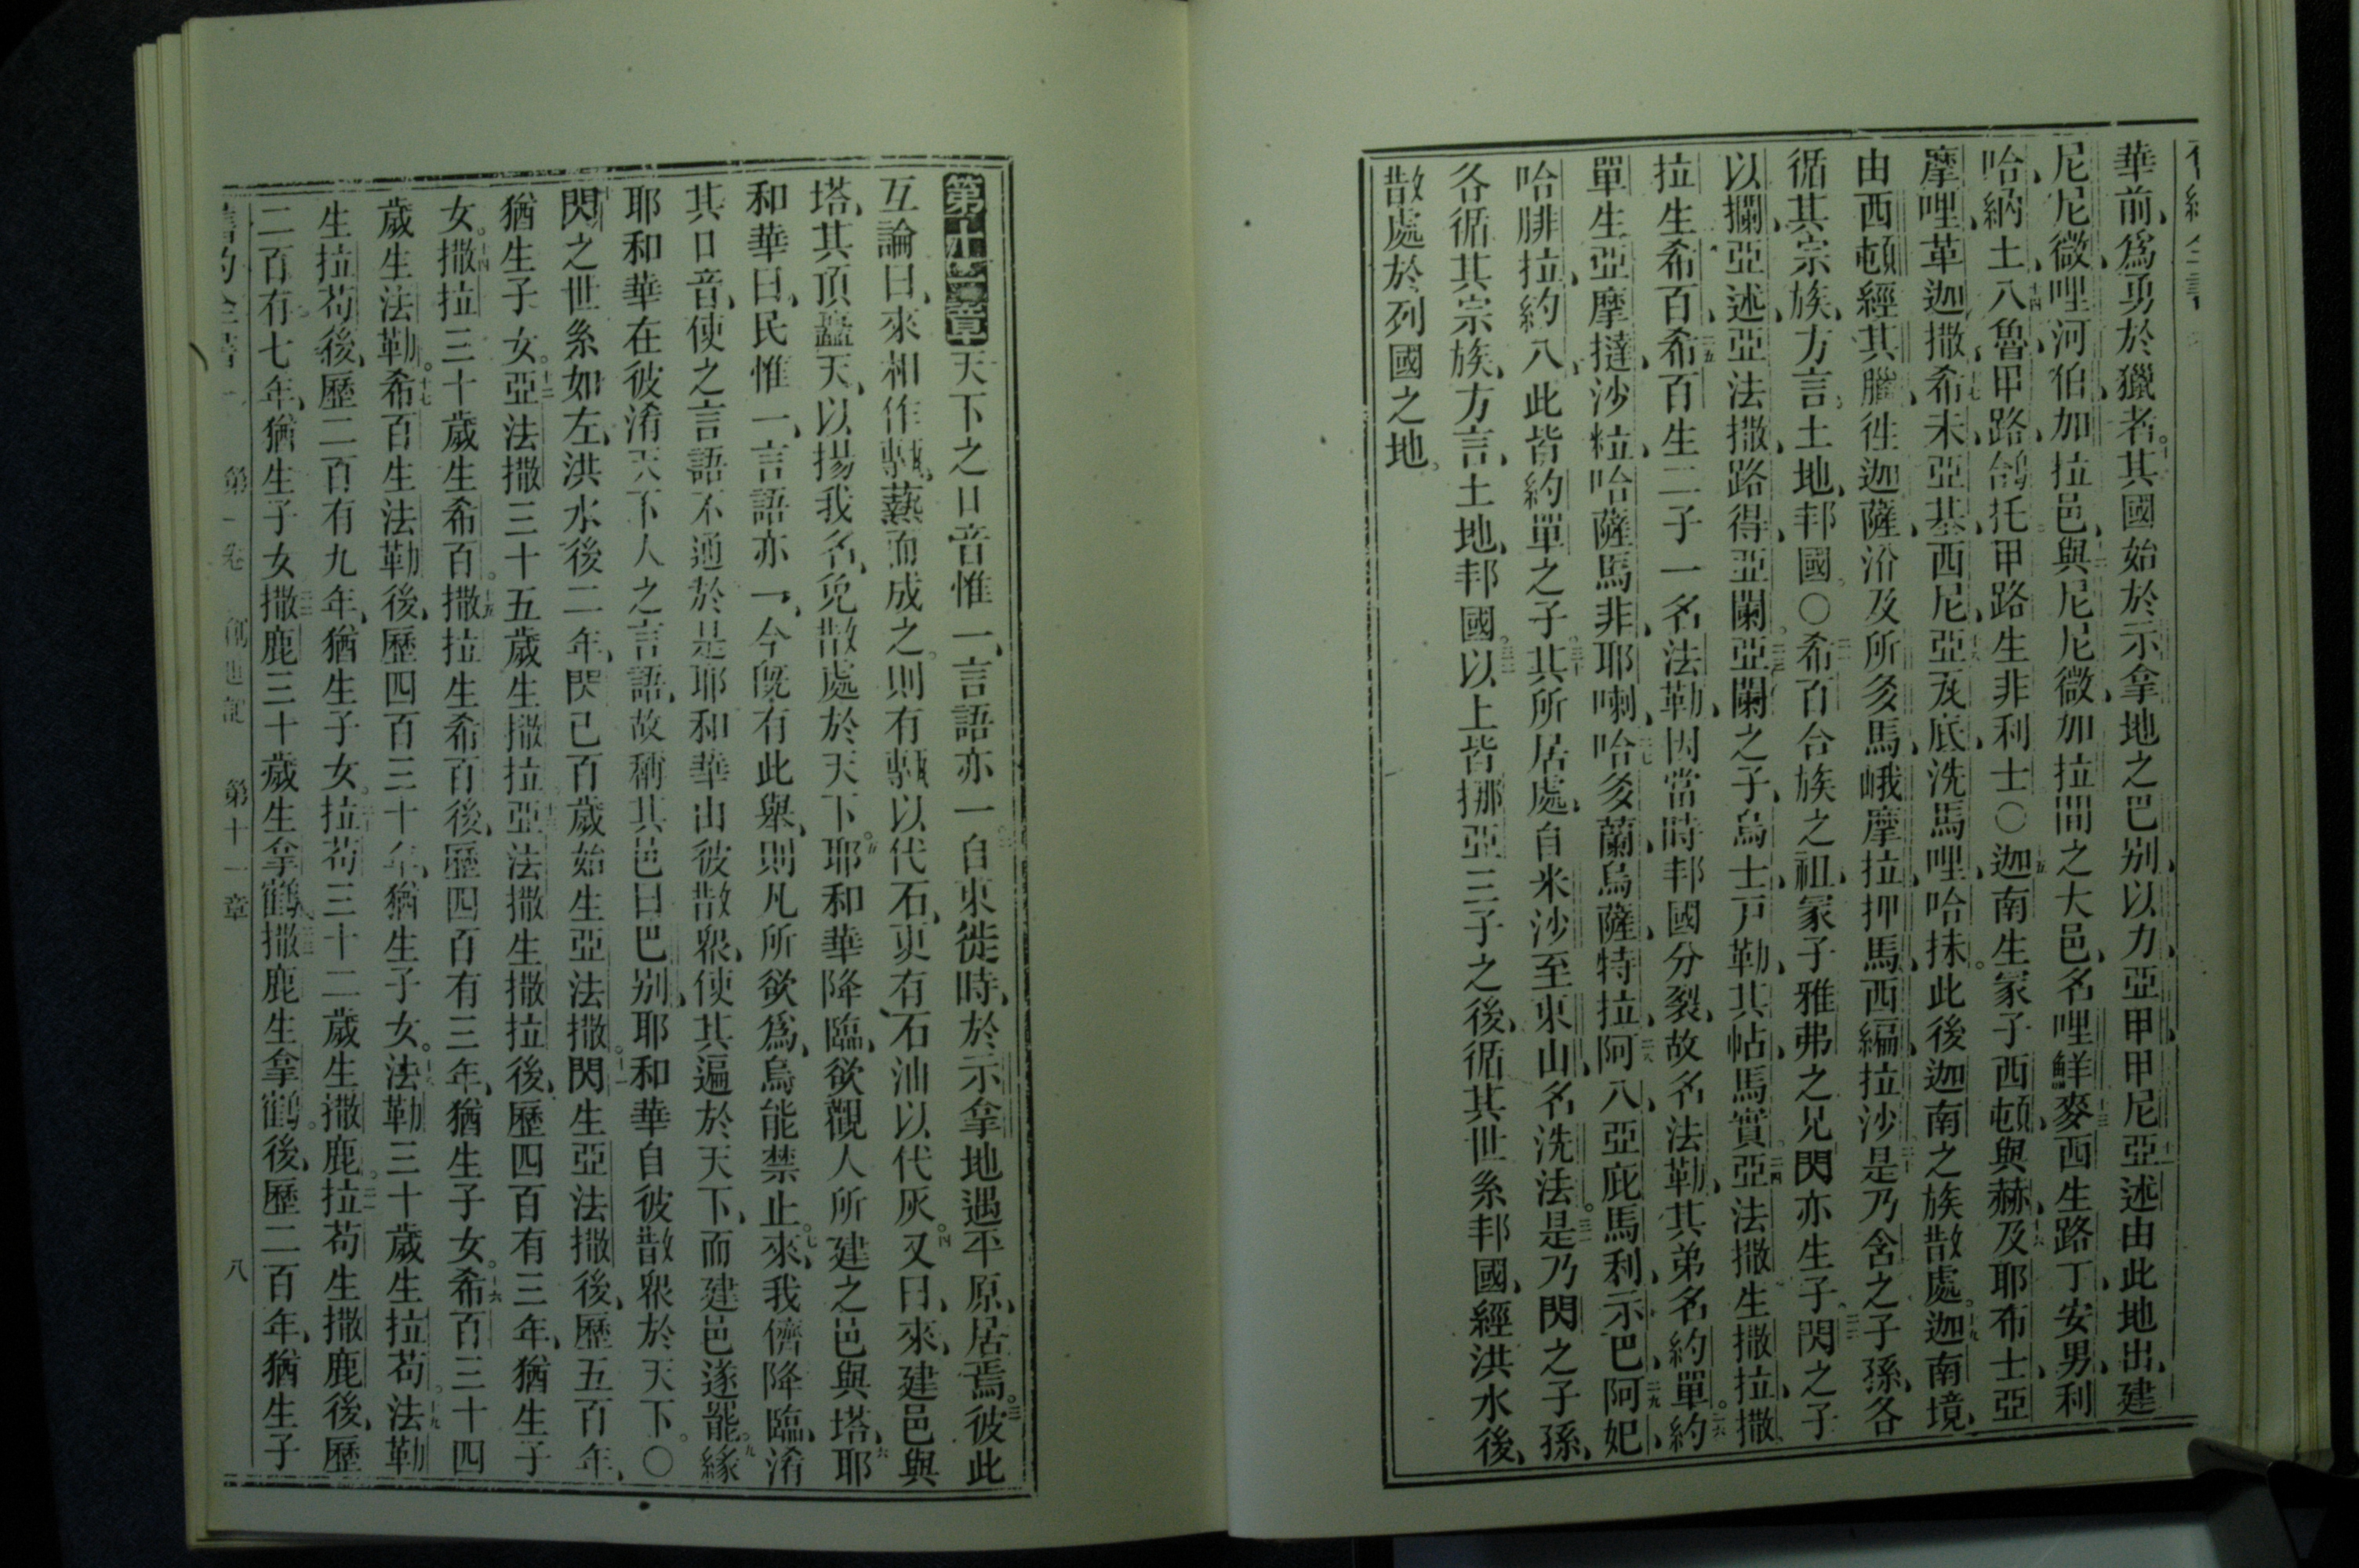 華前、爲勇於獵者。其國始於示拿地之巴別、以力、亞甲、甲尼、亞述由此地出、建
尼尼微、哩河伯、加拉邑、與尼尼微、加拉間之大邑、名哩鮮、麥西生路丁、安男、利
哈、納土、八魯甲路、鴿托、甲路生非利士○迦南生冢子西頓、與赫、及耶布士、亞
摩哩、革迦撒、希未、亞基、西尼、亞瓦底、洗馬哩、哈抹。此後迦南之族散處。迦南境、
由西頓經其臘、徃迦薩、沿及所多馬、峨摩拉、押馬、西編、拉沙。是乃含之子孫、各
循其宗族、方言、土地、邦國。○希百合族之祖、冢子雅弗之兄閃亦生子。閃之子
以攔、亞述、亞法撒、路得、亞闌。亞闌之子、烏士、戸勒、其帖、馬實。亞法撒生撒拉、撒
拉生希百、希百生二子一名法勒、因當時邦國分裂、故名法勒、其弟名約單。約
單生亞摩撻、沙粒、哈薩馬非、耶喇、哈多蘭、烏薩、特拉、阿八、亞庇馬利、示巴、阿妃、
哈腓拉、約八、此皆約單之子。其所居處、自米沙至東山、名洗法。是乃閃之子孫、
各循其宗族、方言、土地、邦國。以上皆挪亞三子之後、循其世系邦國、經洪水後、
散處於列國之地。
第十一章 天下之口音惟一、言語亦一。自東徙時、於示拿地遇平原、居焉。彼此
互論曰、來相作𤮍、爇而成之。則有𤮍以代石、更有石油以代灰。又曰、來、建邑與
塔、其頂齾天、以揚我名、免散處於天下。耶和華降臨、欲觀人所建之邑與塔、耶
和華曰、民惟一、言語亦一、今旣有此舉、則凡所欲爲、烏能禁止。來、我儕降臨、淆
其口音、使之言語不通於是耶和華由彼散衆、使其遍於天下、而建邑遂罷。緣
耶和華在彼淆天下人之言語、故稱其邑曰巴別、耶和華自彼散衆於天下。○
閃之世系如左、洪水後二年、閃已百歲始生亞法撒。閃生亞法撒後、歷五百年、
猶生子女。亞法撒三十五歲生撒拉。亞法撒生撒拉後、歷四百有三年、猶生子
女。撒拉三十歲生希百。撒拉生希百後、歷四百有三年、猶生子女。希百三十四
歲生法勒。希百生法勒後、歷四百三十年、猶生子女。法勒三十歲生拉苟。法勒
生拉苟後、歷二百有九年、猶生子女。拉苟三十二歲生撒鹿。拉苟生撒鹿後、歷
二百有七年、猶生子女撒鹿三十歲生拿鶴、撒鹿生拿鶴。後、歷二百年、猶生子
舊約全書 第一卷 創世記 第十一章 八